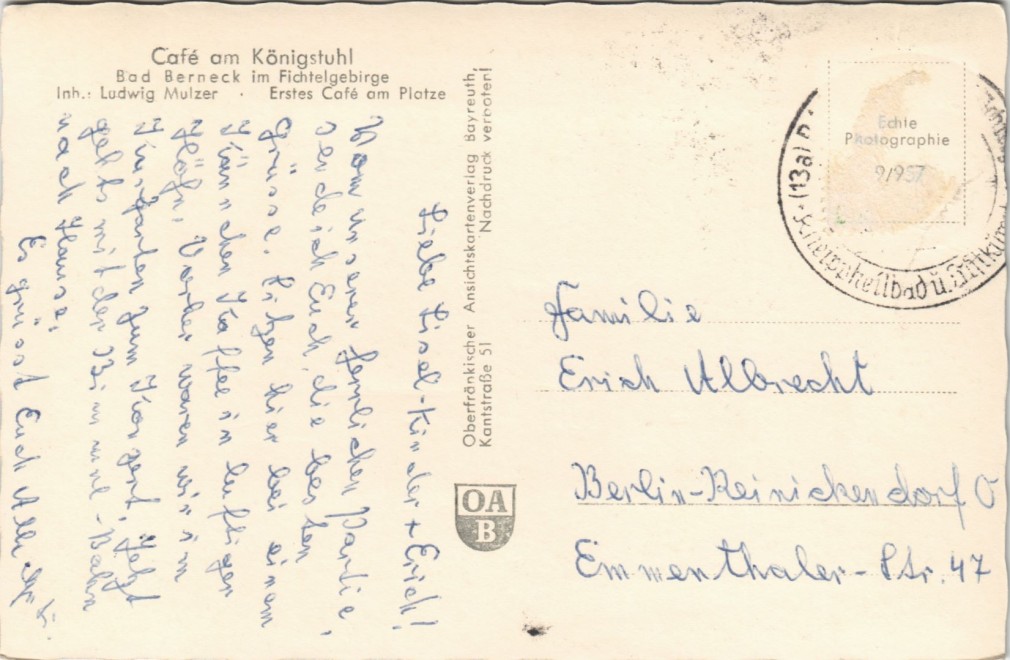 Café am Königstuhl
Bad Berneck im Fichtelgebirge
Inh.: Ludwig Mulzer · Erstes Café am Platze
Liebe Lisel-Kinder + Erich!
Von unserer herrlichen Partie,
sende ich Euch die besten
Grüsse. Sitzen hier bei einem
Kännchen Kaffee in luftiger
Höh'. Vorher waren wir im
Kurgarten zum Konzert. Jetzt
geht's mit der Bimmel-Bahn
nach Hause.
Es grüsst Euch Alle
Oberfränkischer Ansichtskartenverlag Bayreuth,
Kantstraße 51 Nachdruck verboten!
OA
B
Echte
Photographie
9/957
(13a)
Kneippheilbad u. Luftkur
Familie
Erich Albrecht
Berlin-Reinickendorf O
Emmenthaler-Str. 47